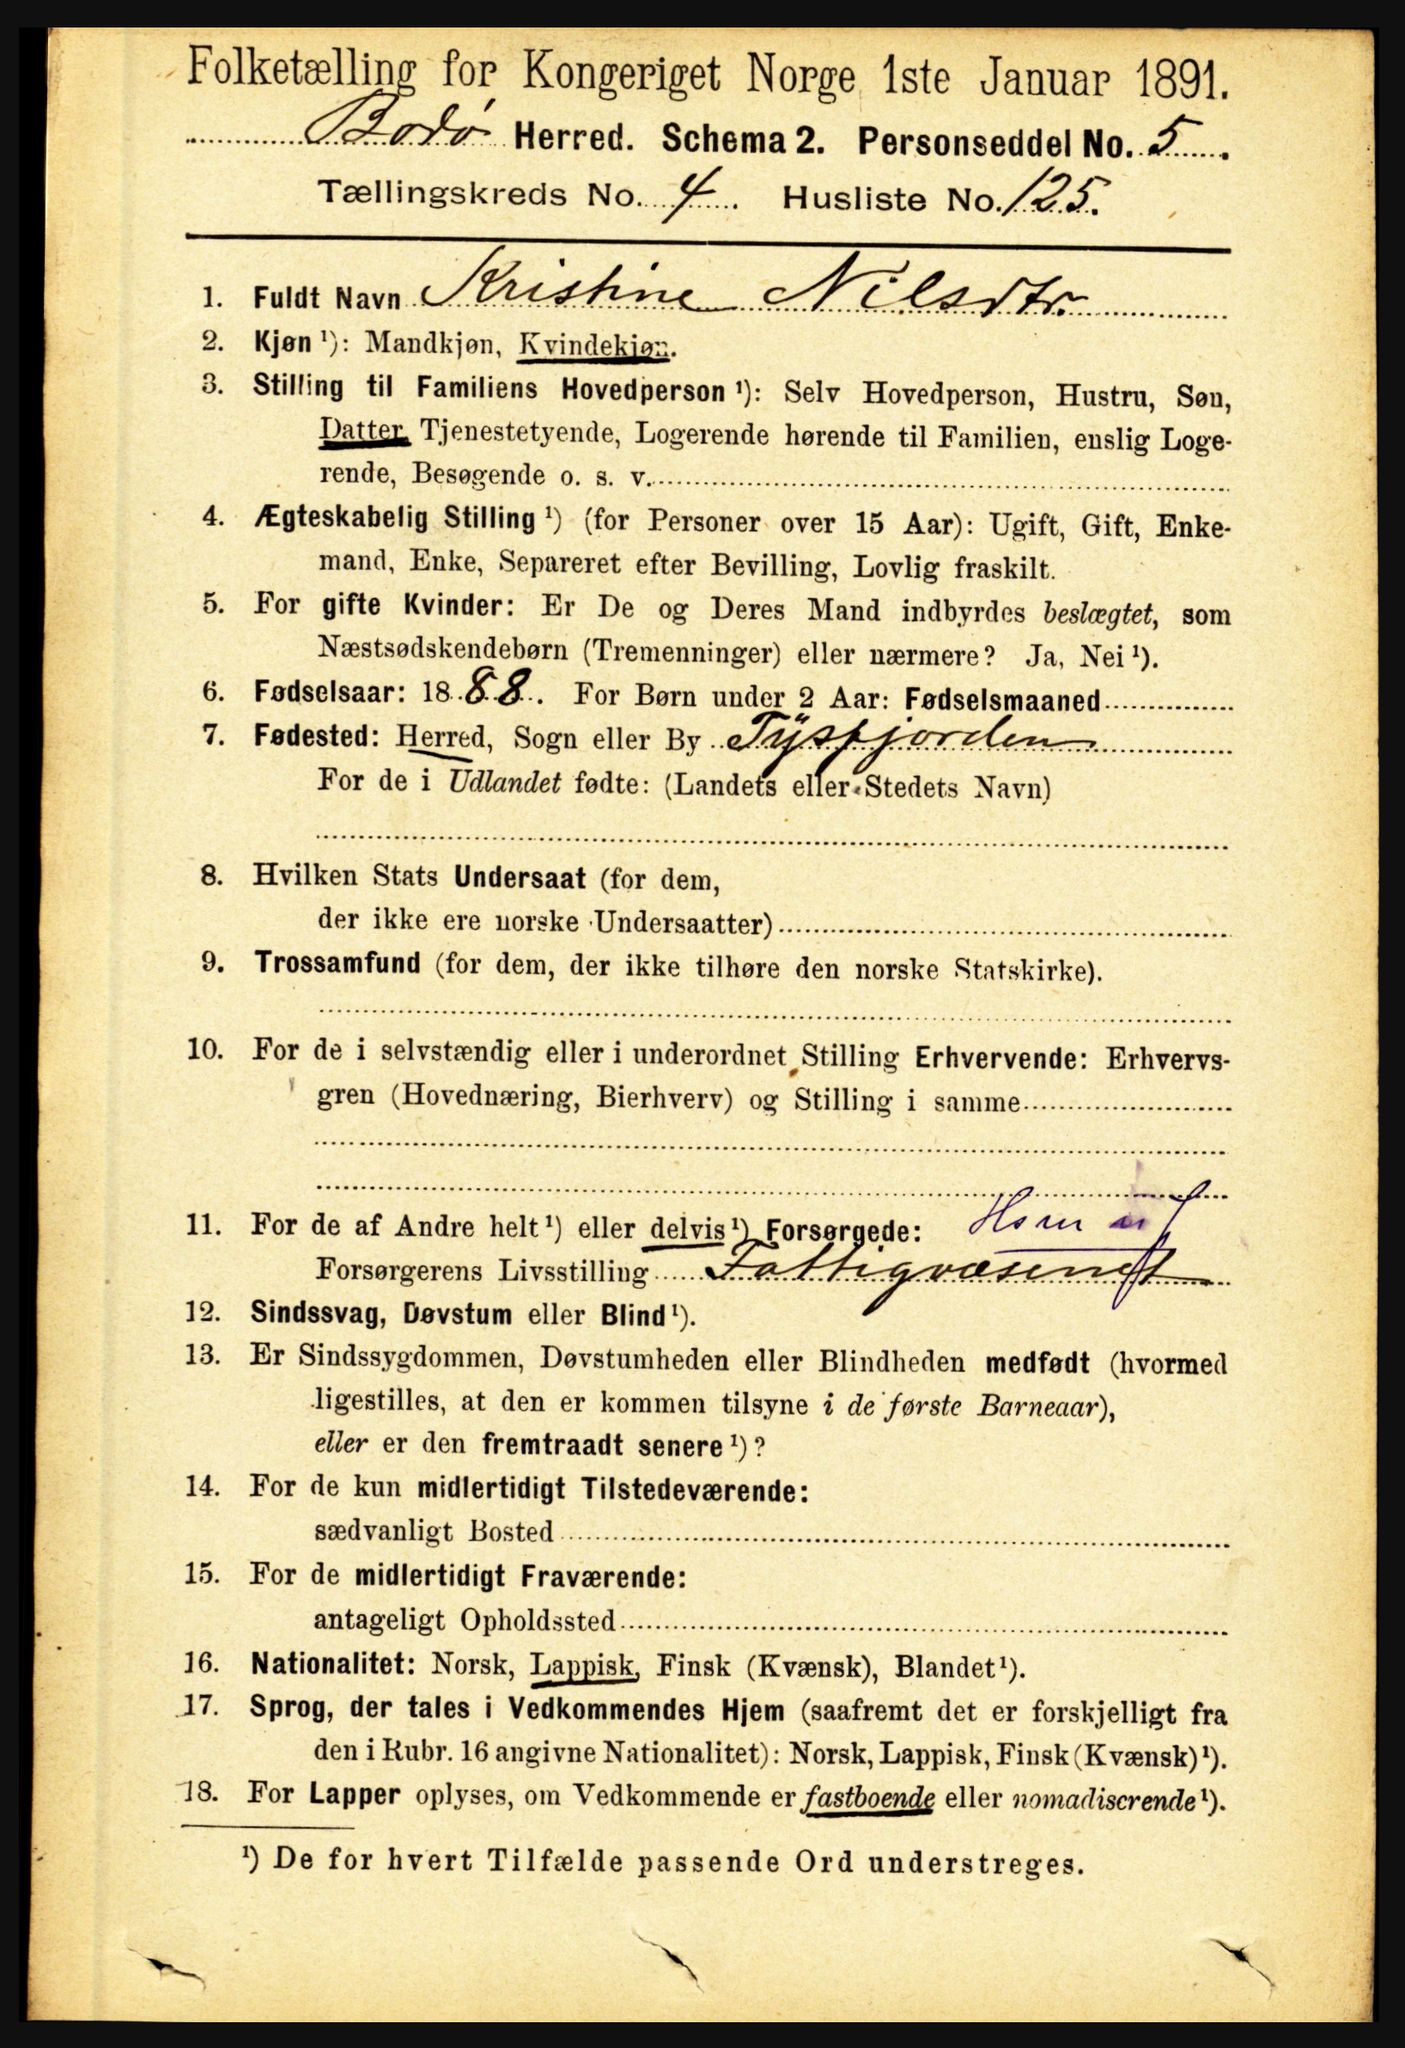 Folketælling for Kongeriget Norge 1ste Januar 1891.
Bodø Herred. Schema 2. Personseddel No. 5.
Tællingskreds No. 4. Husliste No. 125.
1. Fuldt Navn Kristine Nilsdtr.
2. Kjøn ¹): Mandkjøn, Kvindekjøn.
3. Stilling til Familiens Hovedperson ¹): Selv Hovedperson, Hustru, Søn,
Datter, Tjenestetyende, Logerende hørende til Familien, enslig Loge-
rende, Besøgende o. s. v.
4. Ægteskabelig Stilling ¹) (for Personer over 15 Aar): Ugift, Gift, Enke-
mand, Enke, Separeret efter Bevilling, Lovlig fraskilt.
5. For gifte Kvinder: Er De og Deres Mand indbyrdes beslægtet, som
Næstsødskendebørn (Tremenninger) eller nærmere? Ja, Nei ¹).
6. Fødselsaar: 1888. For Børn under 2 Aar: Fødselsmaaned
7. Fødested: Herred, Sogn eller By Tysfjorden
For de i Udlandet fødte: (Landets eller Stedets Navn)
8. Hvilken Stats Undersaat (for dem,
der ikke ere norske Undersaatter)
9. Trossamfund (for dem, der ikke tilhøre den norske Statskirke).
10. For de i selvstændig eller i underordnet Stilling Erhvervende: Erhvervs-
gren (Hovednæring, Bierhverv) og Stilling i samme
11. For de af Andre helt ¹) eller delvis ¹) Forsørgede:
Forsørgerens Livsstilling Fattigvæsenet
12. Sindssvag, Døvstum eller Blind ¹).
13. Er Sindssygdommen, Døvstumheden eller Blindheden medfødt (hvormed
ligestilles, at den er kommen tilsyne i de første Barneaar),
eller er den fremtraadt senere ¹)?
14. For de kun midlertidigt Tilstedeværende:
sædvanligt Bosted
15. For de midlertidigt Fraværende:
antageligt Opholdssted
16. Nationalitet: Norsk, Lappisk, Finsk (Kvænsk), Blandet ¹).
17. Sprog, der tales i Vedkommendes Hjem (saafremt det er forskjelligt fra
den i Rubr. 16 angivne Nationalitet): Norsk, Lappisk, Finsk (Kvænsk) ¹).
18. For Lapper oplyses, om Vedkommende er fastboende eller nomadiserende ¹).
¹) De for hvert Tilfælde passende Ord understreges.